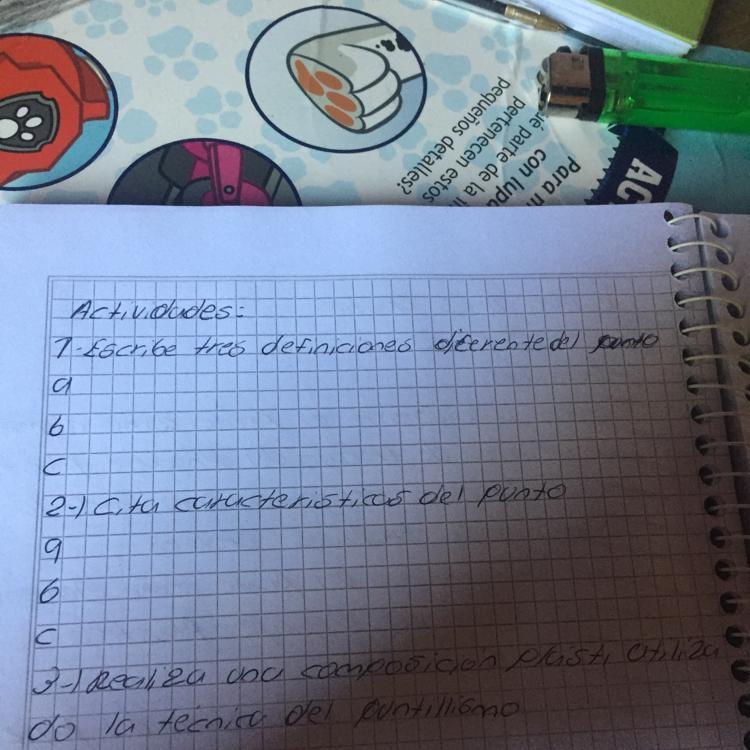 Para n
con lupa
ué parte de la i
pertenecen estos
pequeños detalles?
AC
Actividades:
1-Escribe tres definiciones diferente del punto
a
b
c
2-) Cita caracteristicas del punto
a
b
c
3-) Realiza una composición plásti utiliza
do la técnica del puntillismo